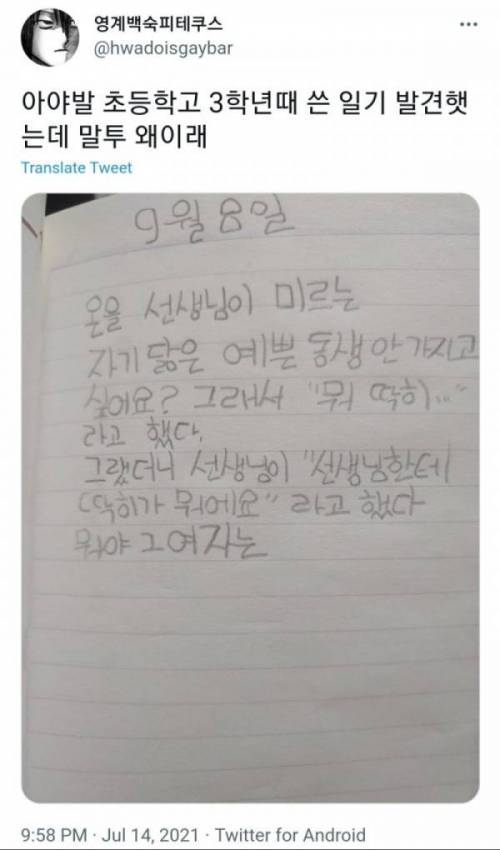 영계백숙피테쿠스
@hwadoisgaybar
아야발 초등학고 3학년때 쓴 일기 발견햇
는데 말투 왜이래
Translate Tweet
9월 8일
온을 선생님이 미르는
자기 닮은 예쁜 동생 안 가지고
싶어요? 그래서 "뭐 딱히..."
라고 했다.
그랬더니 선생님이 "선생님한테
딱히가 뭐에요" 라고 했다
뭐야 그여자는
9:58 PM · Jul 14, 2021 · Twitter for Android